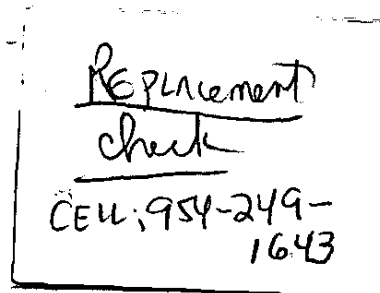 Replacement
check
CELL: 954-249-
1643